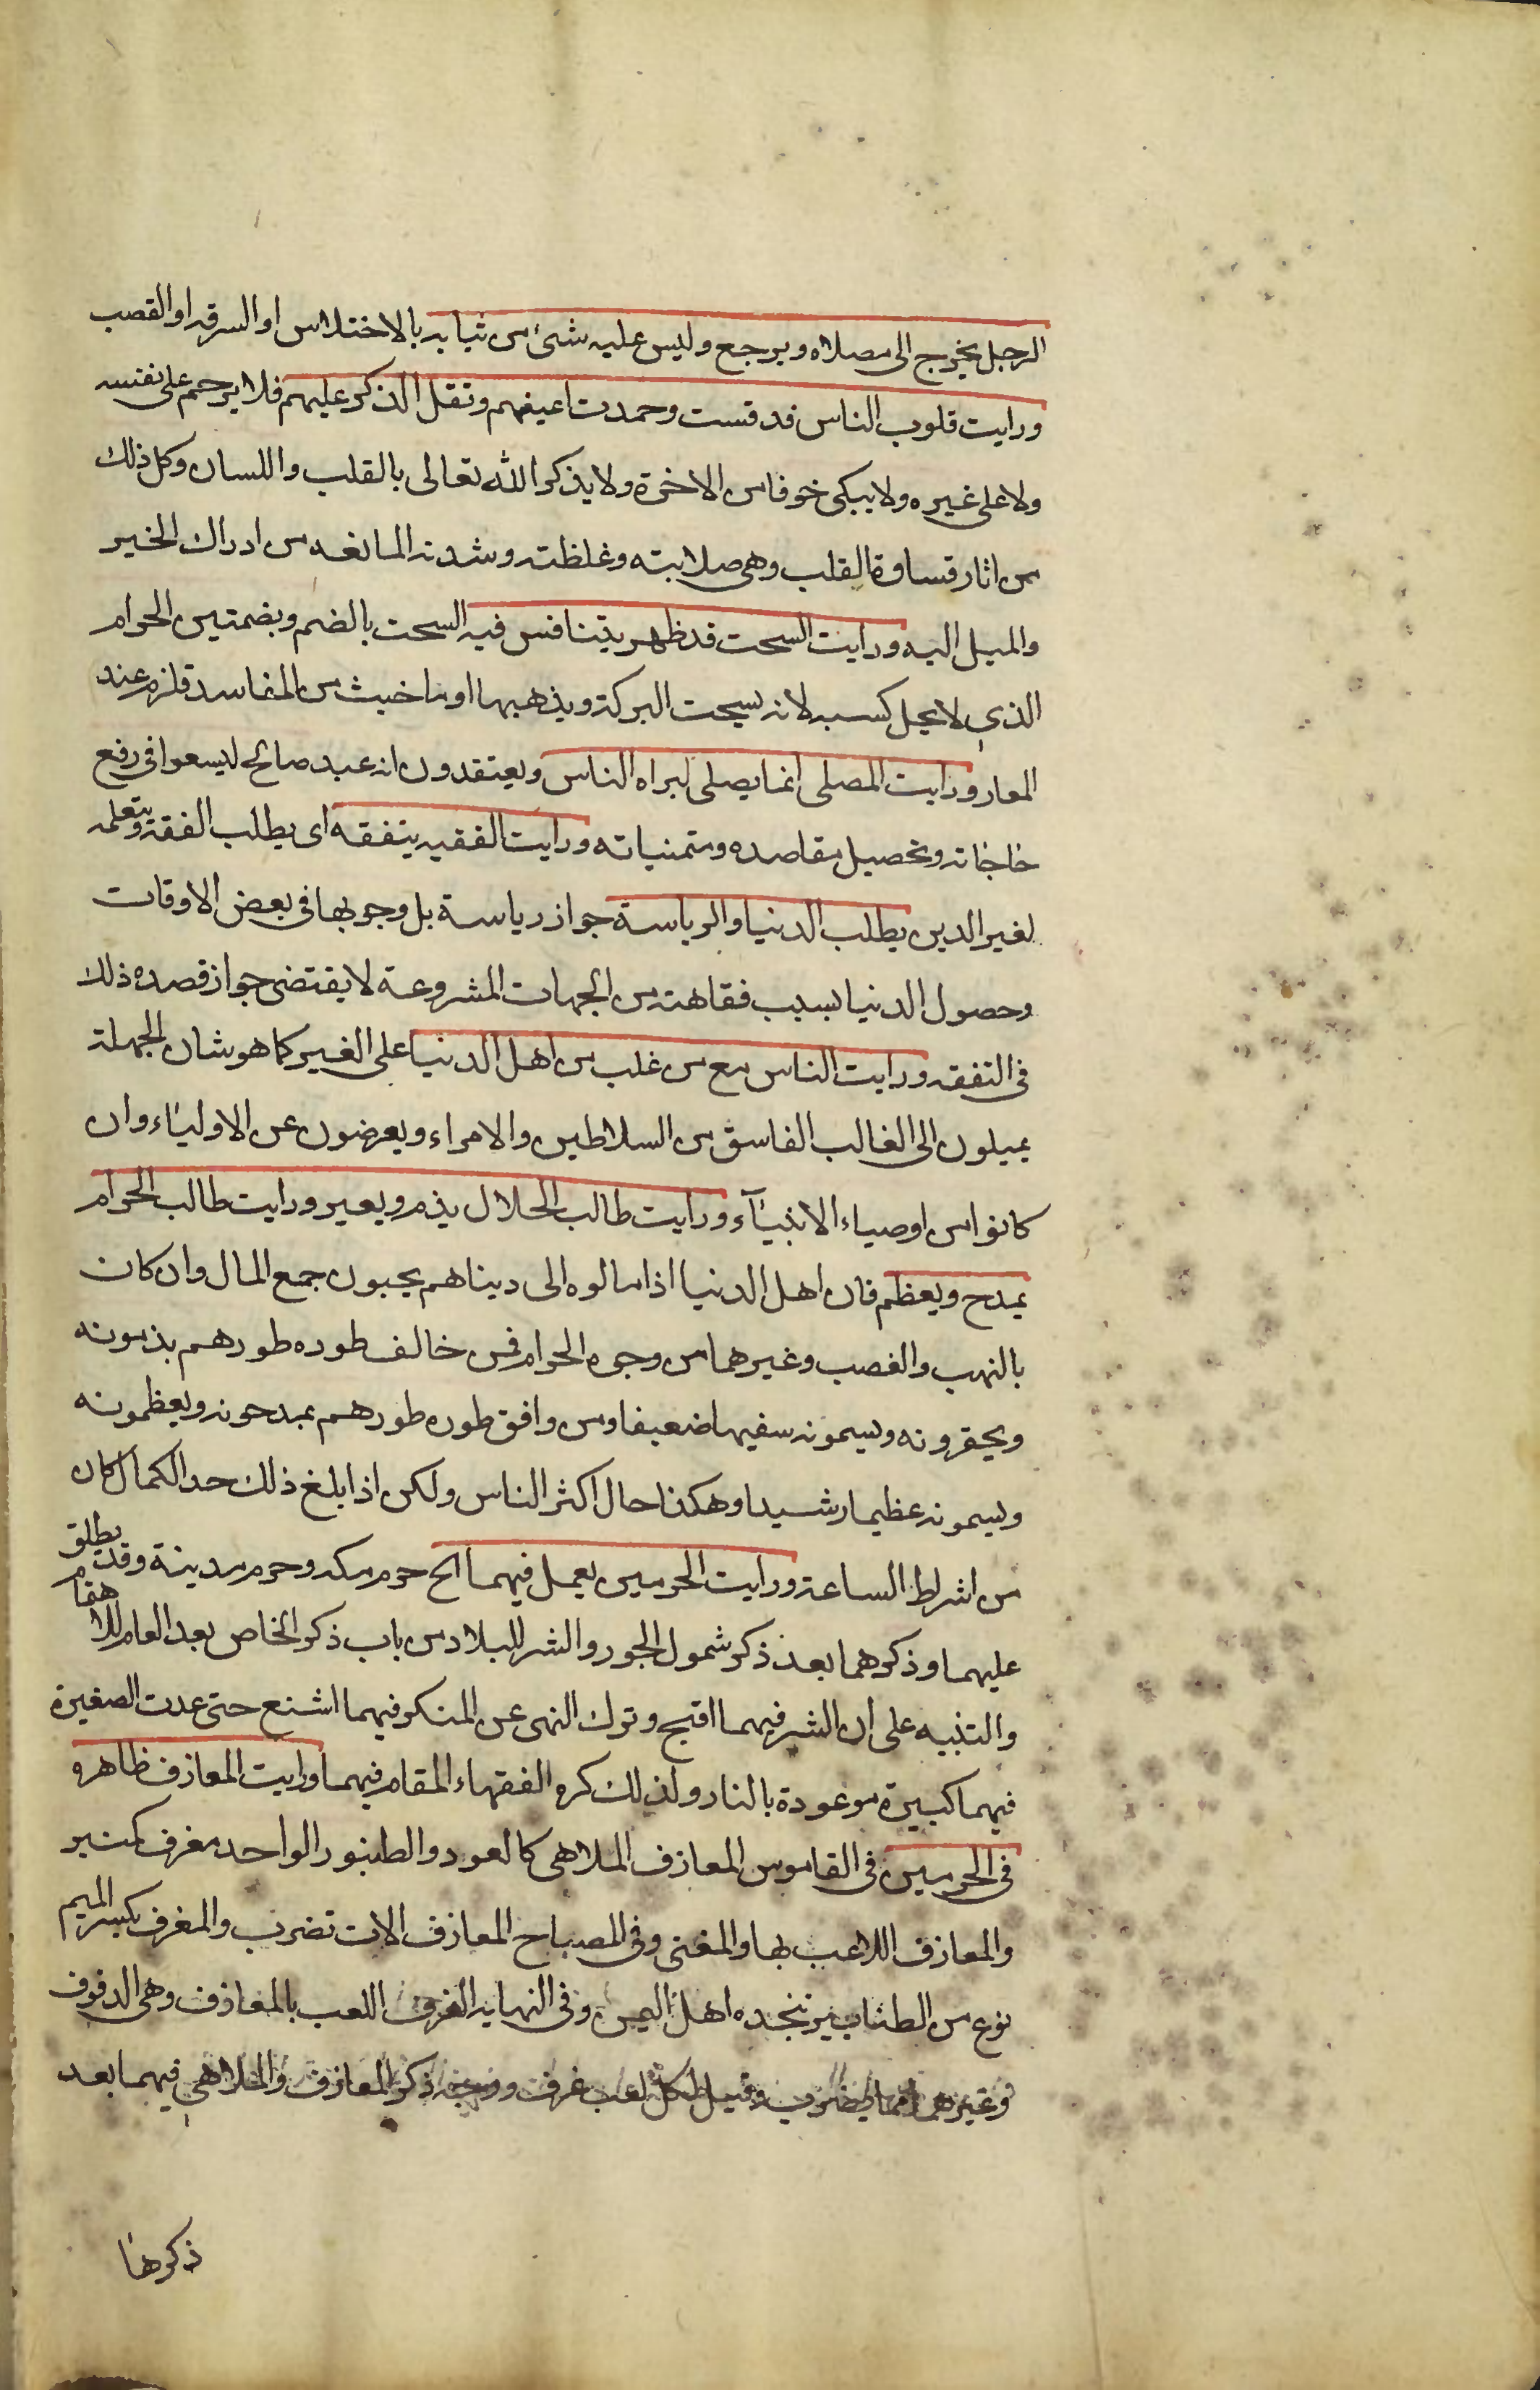 الرجل يخرج الى مصلاه ويرجع وليس عليه شئ من ثيابه بالاختلاس او السرقه او القصب
ورايت قلوب الناس قد قست وجمدت اعينهم وثقل الذكر عليهم فلا يرحم على نفسه
ولا على غيره ولا يبكى خوفا من الاخرة ولا يذكر الله تعالى بالقلب واللسان وكل ذلك
من اثار قساوة القلب وهى صلابته وغلظته وشدته المانعه من ادراك الخير
والميل اليه ورايت السحت قد ظهر يتنافس فيه السحت بالضم وبضمتين الحرام
الذى لا يحل كسبه لانه يسحت البركة ويذهبها او ما خبث من المفاسد فلزم عند
العار ورايت المصلى انما يصلى ليراه الناس ويعتقدون انه عبد صالح ليسعوا فى رفع
حاجاته وتحصيل مقاصده ومتمنياته ورايت الفقيه يتفقه اى يطلب الفقه ويتعلمه
لغير الدين يطلب الدنيا والرياسة جواز رياسة بل وجوبها فى بعض الاوقات
وحصول الدنيا بسبب فقاهته من الجهات المشروعة لا يقتضى جواز قصده ذلك
فى التفقه ورايت الناس مع من غلب من اهل الدنيا على الغير كما هو شان الجهلة
يميلون الى الغالب الفاسق من السلاطين والامراء ويعرضون عن الاولياء وان
كانوا من اوصياء الانبياء ورايت طالب الحلال يذم ويعير ورايت طالب الحرام
يمدح ويعظم فان اهل الدنيا اذا مالوه الى ديناهم يحبون جمع المال وان كان
بالنهب والغصب وغيرهما من وجوه الحرام فمن خالف طوره طورهم يذمونه
ويحقرونه ويسمونه سفيها ضعيفا ومن وافق طوره طورهم يمدحونه ويعظمونه
ويسمونه عظيما رشيدا وهكذا حال اكثر الناس ولكن اذا بلغ ذلك حد الكمال كان
من اشراط الساعة ورايت الحرمين يعمل فيهما الخ حرم مكه وحرم مدينة وقد يطلق
عليهما وذكرهما بعد ذكر شمول الجور والشر للبلاد من باب ذكر الخاص بعد العام للاهتمام
والتنبيه على ان الشر فيهما اقبح وترك النهى عن المنكر فيهما اشنع حتى عدت الصغيرة
فيهما كبيرة موعودة بالنار ولذلك كره الفقهاء المقام فيهما ورايت المعازف ظاهره
فى الحرمين فى القاموس المعازف الملاهى كالعود والطنبور الواحد معزف كمنبر
والمعازف اللاعب بها والمغنى وفى المصباح المعازف الات تضرب والمعزف بكسر الميم
نوع من الطنابير يتخذه اهل اليمن وفى النهايه العزف اللعب بالمعازف وهى الدفوف
وغيرها مما يضرب وقيل كل لعب عزف ووجه ذكر المعازف والملاهى فيهما بعد
ذكرها